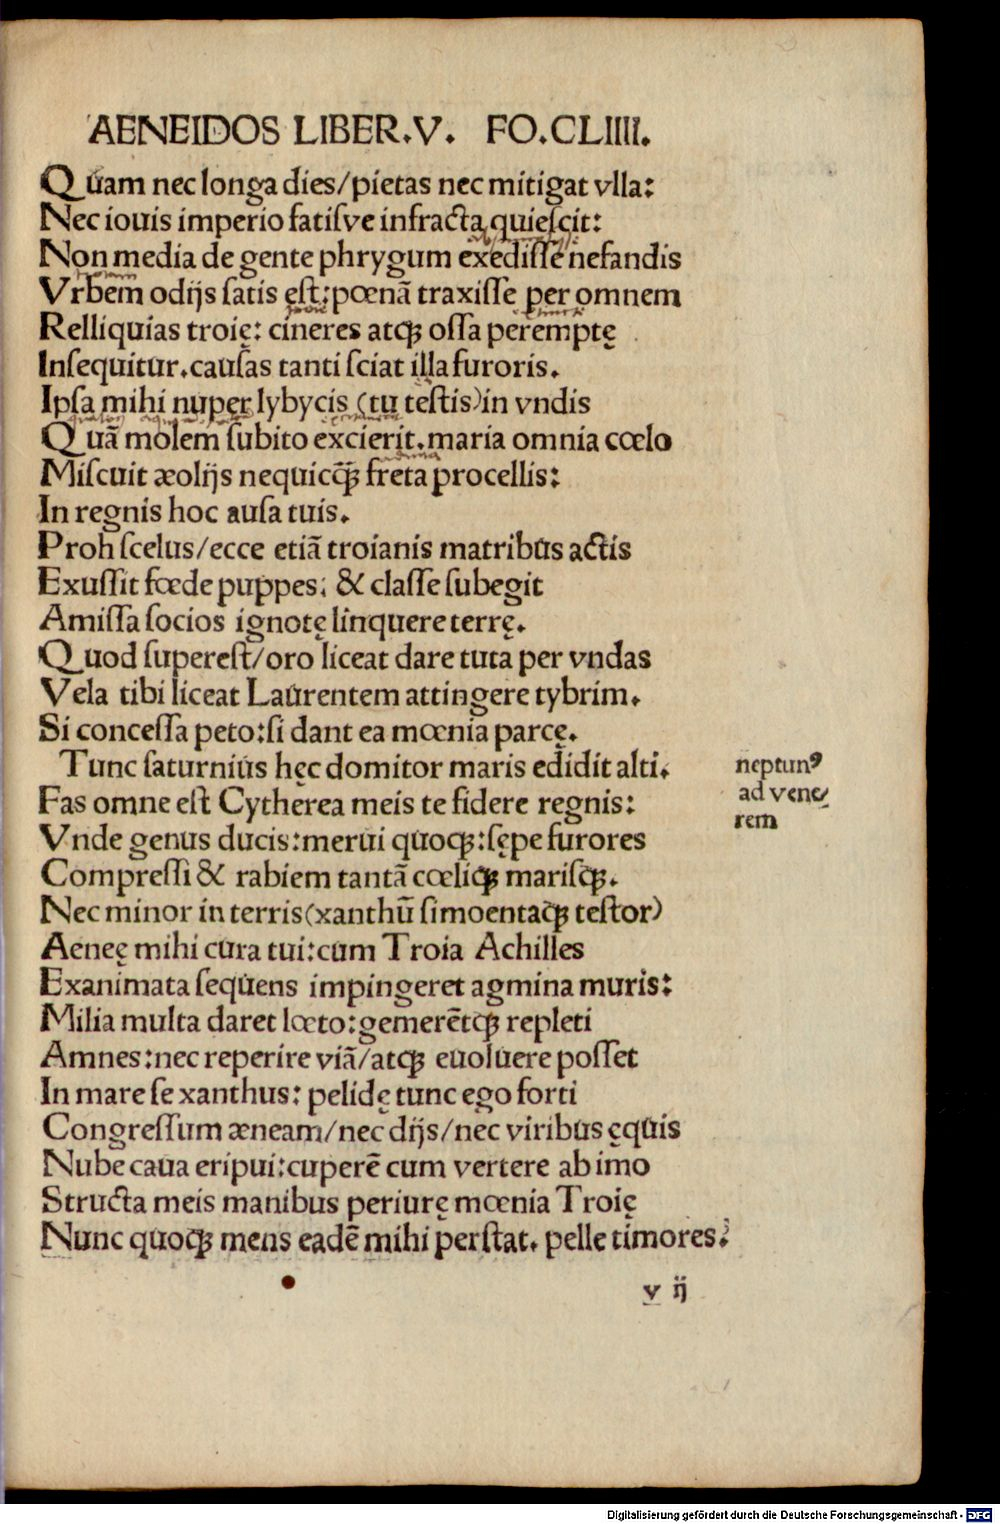 AENEIDOS LIBER.V. FO.CLIIII.
Quam nec longa dies/pietas nec mitigat vlla:
Nec iouis imperio fatisve infracta quiescit:
Non media de gente phrygum exedisse nefandis
Vrbem odijs satis est: pœnā traxisse per omnem
Relliquias troię: cineres atqꝫ ossa peremptę
Insequitur. causas tanti sciat illa furoris.
Ipsa mihi nuper lybycis (tu testis) in vndis
Quā molem subito excierit. maria omnia cœlo
Miscuit æolijs nequicq̄ꝫ freta procellis:
In regnis hoc ausa tuis.
Proh scelus/ecce etiā troianis matribus actis
Exussit fœde puppes: & classe subegit
Amissa socios ignotę linquere terrę.
Quod superest/oro liceat dare tuta per vndas
Vela tibi liceat Laurentem attingere tybrim.
Si concessa peto: si dant ea mœnia parcę.
Tunc saturnius hęc domitor maris edidit alti.
neptunꝰ
ad vene/
rem
Fas omne est Cytherea meis te fidere regnis:
Vnde genus ducis: merui quoqꝫ: sępe furores
Compressi & rabiem tantā cœliqꝫ marisqꝫ.
Nec minor in terris (xanthū simoentaqꝫ testor)
Aeneę mihi cura tui: cum Troia Achilles
Exanimata sequens impingeret agmina muris:
Milia multa daret lœto: gemerētqꝫ repleti
Amnes: nec reperire viā/atqꝫ euoluere posset
In mare se xanthus: pelidę tunc ego forti
Congressum æneam/nec dijs/nec viribus ęquis
Nube caua eripui: cuperē cum vertere ab imo
Structa meis manibus periurę mœnia Troię
Nunc quoqꝫ mens eadē mihi perstat. pelle timores:
v ij
Digitalisierung gefördert durch die Deutsche Forschungsgemeinschaft - DFG